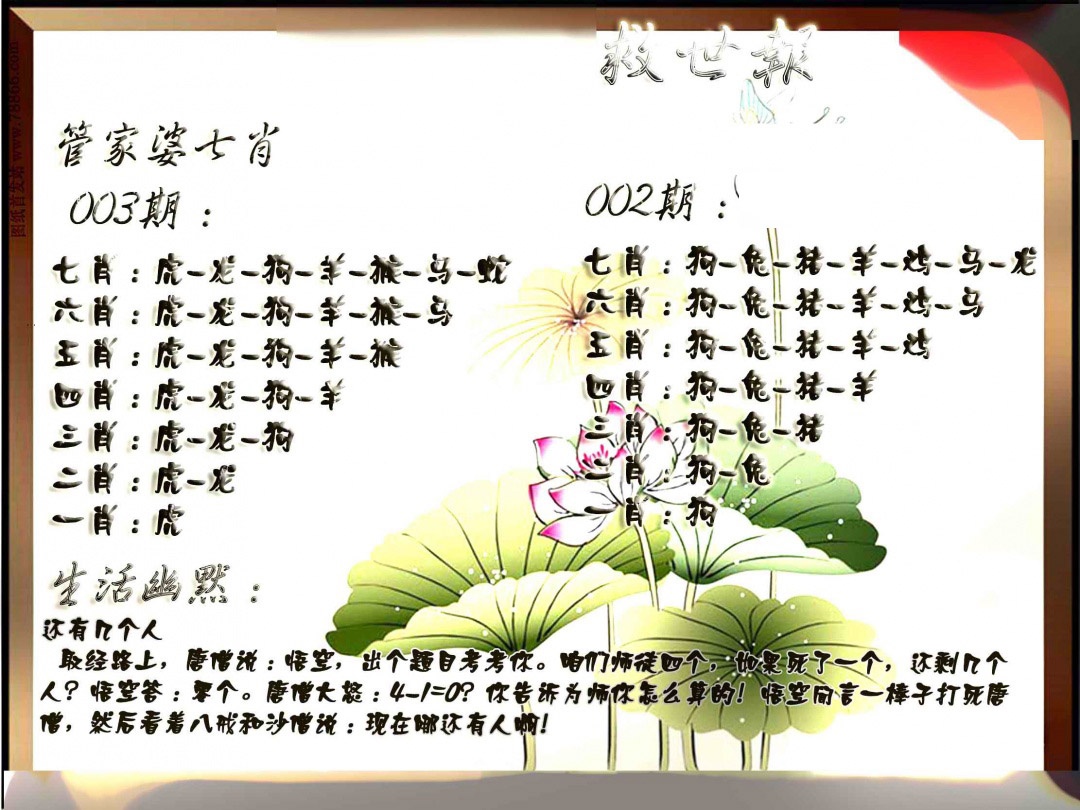 救世報
管家婆七肖
003期：
七肖：虎-龙-狗-羊-猴-马-蛇
六肖：虎-龙-狗-羊-猴-马
五肖：虎-龙-狗-羊-猴
四肖：虎-龙-狗-羊
三肖：虎-龙-狗
二肖：虎-龙
一肖：虎
002期：
七肖：狗-兔-猪-羊-鸡-马-龙
六肖：狗-兔-猪-羊-鸡-马
五肖：狗-兔-猪-羊-鸡
四肖：狗-兔-猪-羊
三肖：狗-兔-猪
二肖：狗-兔
一肖：狗
生活幽默：
还有几个人
取经路上，唐僧说：悟空，出个题目考考你。咱们师徒四个，如果死了一个，还剩几个
人？悟空答：零个。唐僧大怒：4-1=0？你告诉为师你怎么算的！悟空闻言一棒子打死唐
僧，然后看着八戒和沙僧说：现在哪还有人啊！
图纸首发站 www.78866.com